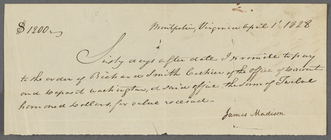 $1200
Montpelier, Virginia April 1st 1828
Sixty days after date I promise to pay
to the order of Richard Smith Cashier of the office of Discount
and Deposit Washington, at said office the sum of Twelve
hundred dollars for value received.
James Madison